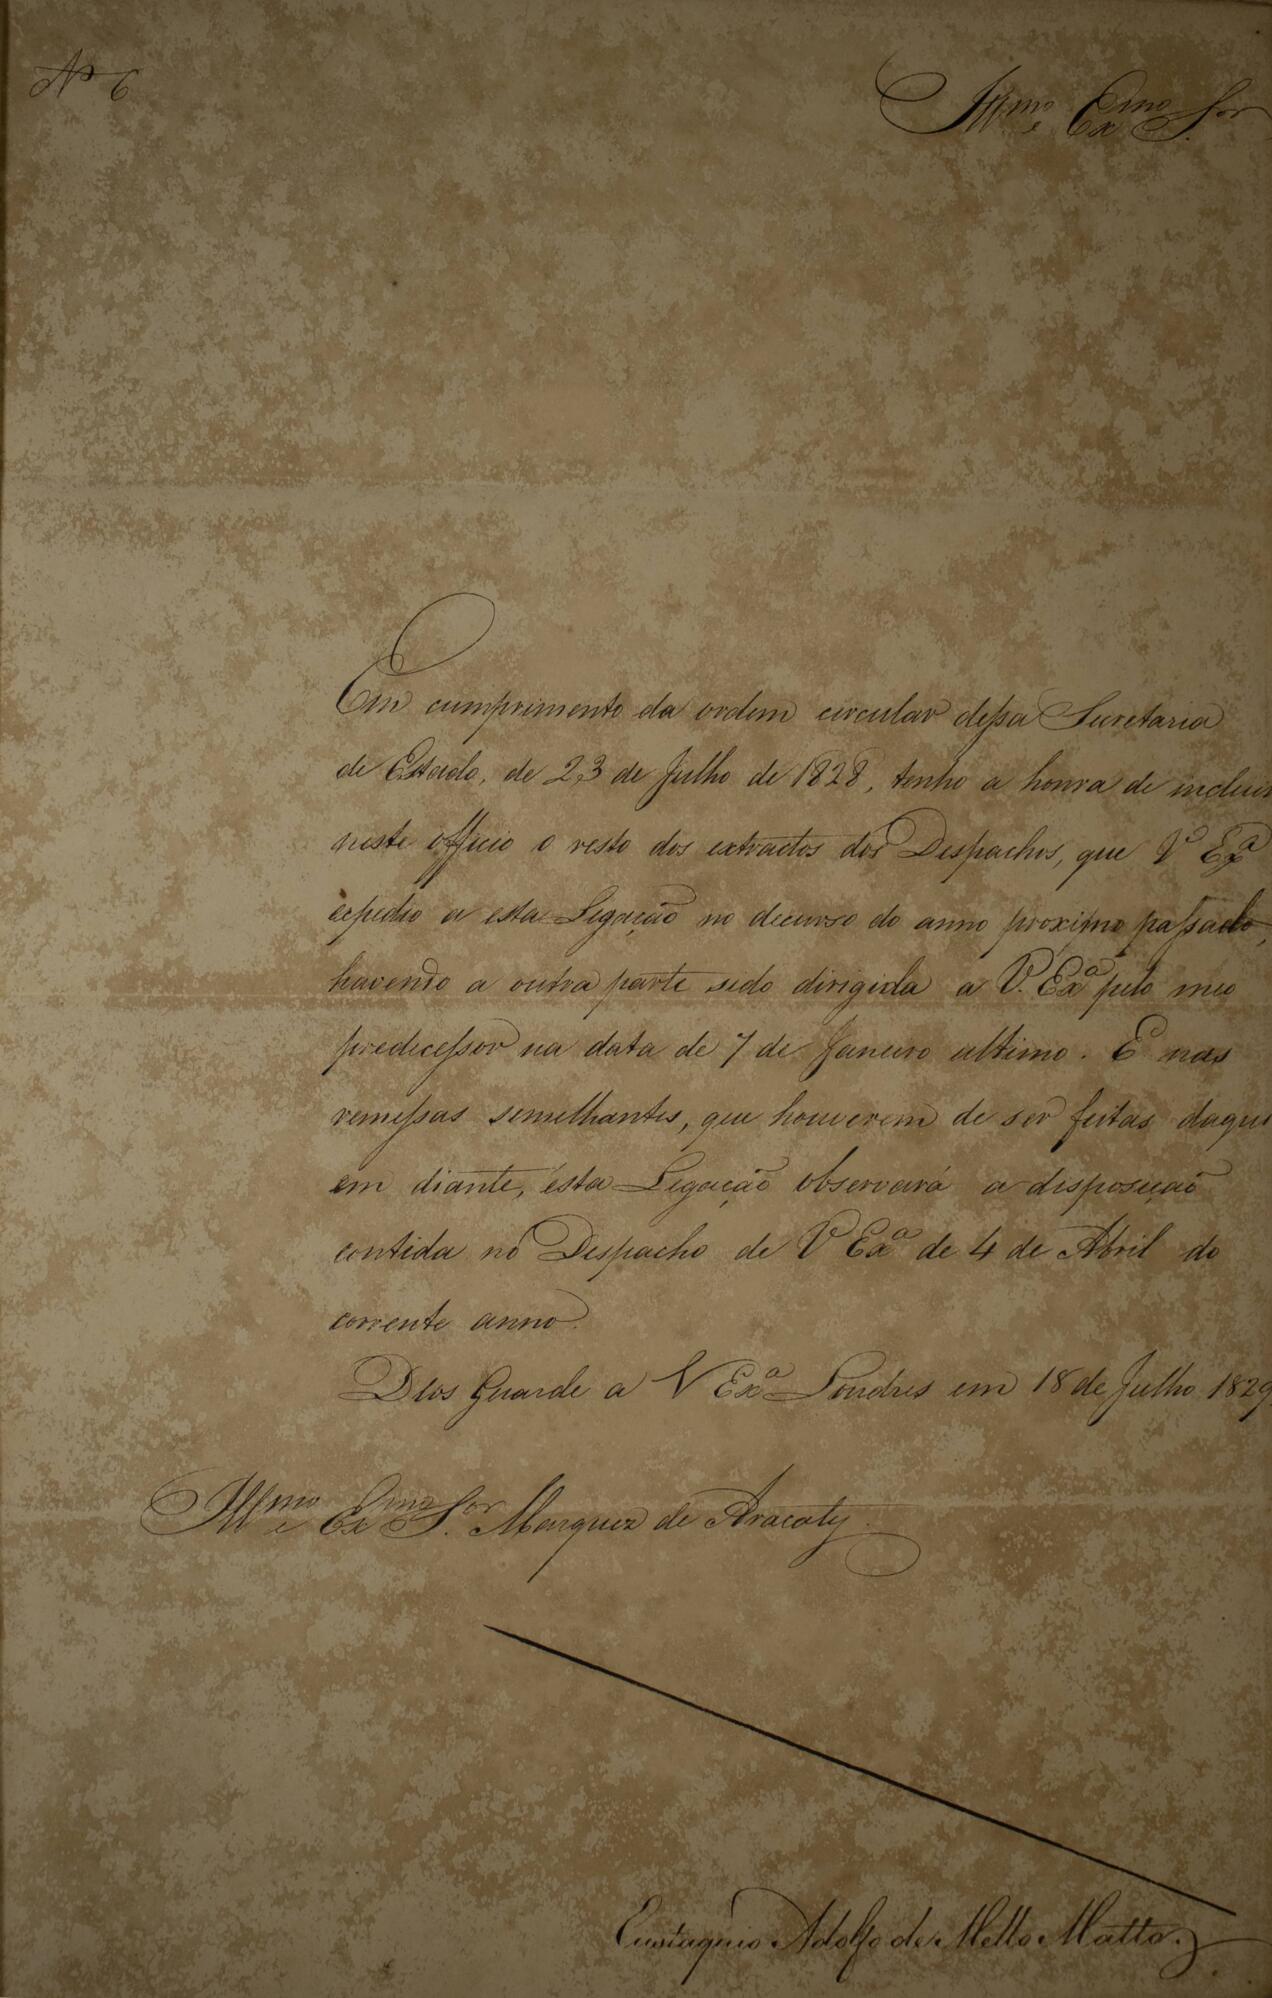 Nº 6
Illmo e Exmo Sor
Em cumprimento da ordem circular dessa Secretaria
de Estado, de 23 de Julho de 1828, tenho a honra de incluir
neste officio o resto dos extractos dos Despachos, que Vª Exª
expedio a esta Legação no decurso do anno proximo passado,
havendo a outra parte sido dirigida a V. Exª pelo meu
predecessor na data de 7 de Janeiro ultimo. E nas
remessas semelhantes, que houverem de ser feitas daqui
em diante, esta Legação observará a disposição
contida no Despacho de V Exª de 4 de Abril do
corrente anno.
Deos Guarde a V Exª Londres em 18 de Julho 1829
Illmo e Exmo Sor Marquez de Aracaty
Eustaquio Adolfo de Mello Mattos